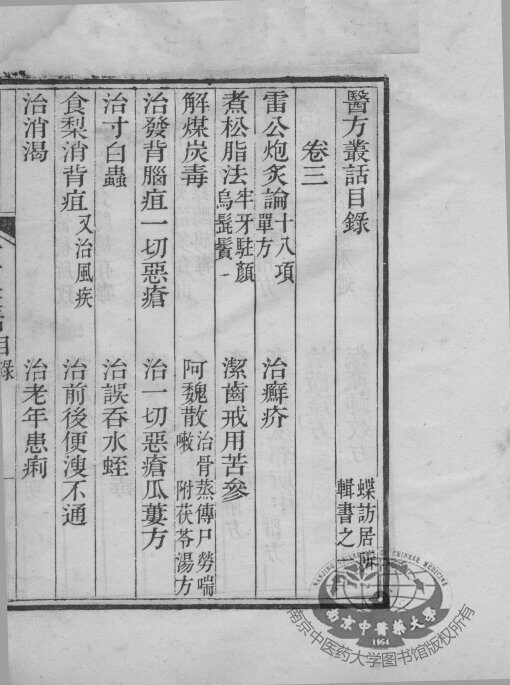 醫方叢話目錄
蝶訪居所
輯書之一
卷三
雷公炮炙論十八項單方 治癬疥
煮松脂法牢牙駐顏烏髭鬢 潔齒戒用苦參
解煤炭毒 阿魏散治骨蒸傳尸勞喘嗽 附茯苓湯方
治發背腦疽一切惡瘡 治一切惡瘡瓜蔞方
治寸白蟲 治誤吞水蛭
食梨消背疽又治風疾 治前後便溲不通
治消渴 治老年患痢
目錄
南京中醫藥大學
1954
南京中医药大学图书馆版权所有